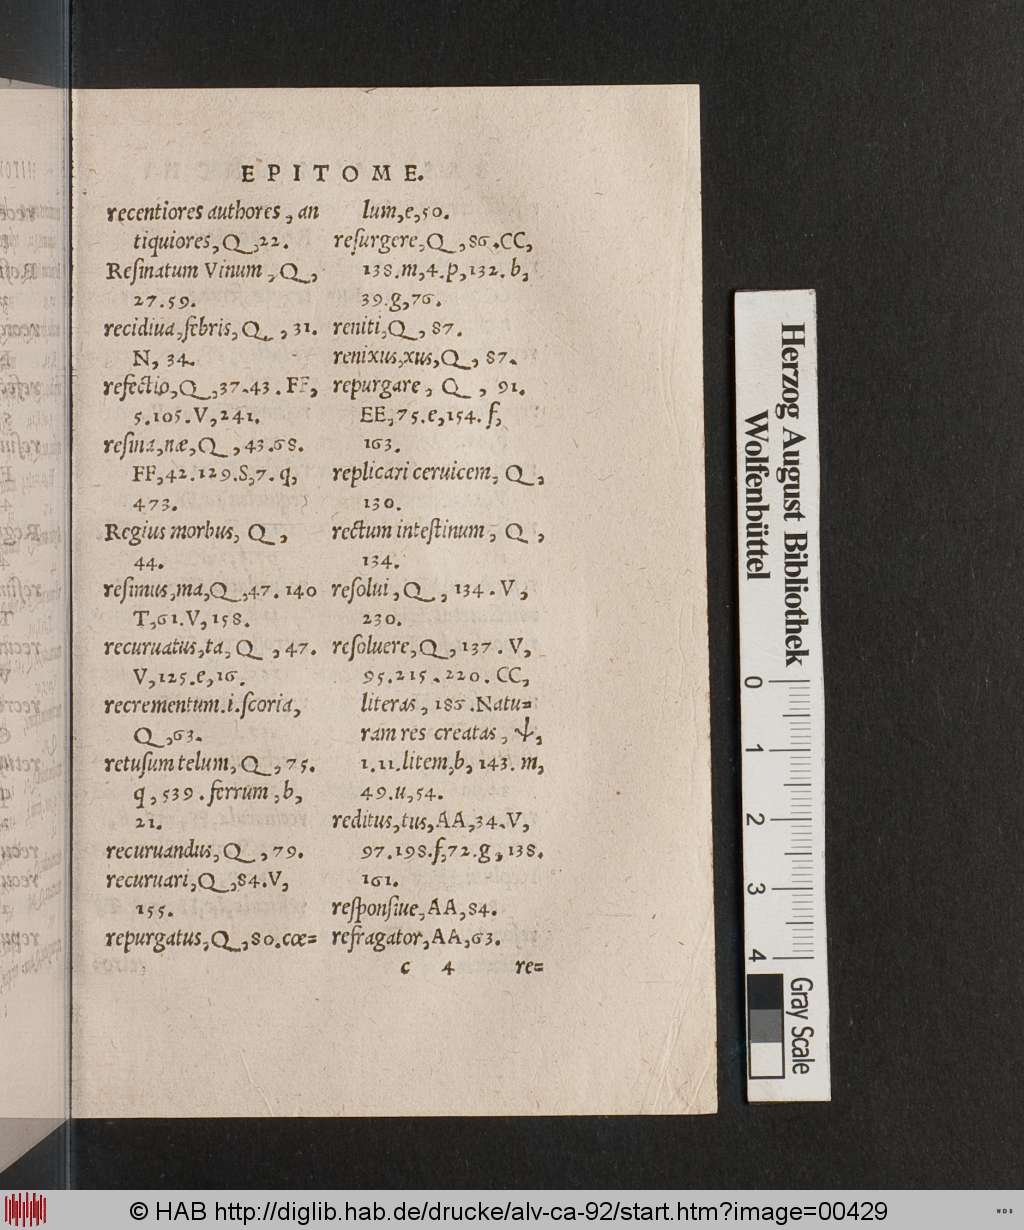 EPITOME.
recentiores authores, an
tiquiores, Q, 22.
Reſinatum Vinum, Q,
27.59.
recidiua, febris, Q, 31.
N, 34.
refectio, Q, 37.43. FF,
5.105.V, 241.
reſina, næ, Q, 43.68.
FF, 42.129.S, 7. q,
473.
Regius morbus, Q,
44.
reſimus, ma, Q, 47. 140
T, 61. V, 158.
recuruatus, ta, Q, 47.
V, 125. e, 16.
recrementum.i.ſcoria,
Q, 63.
retuſum telum, Q, 75.
q, 539. ferrum, b,
21.
recuruandus, Q, 79.
recuruari, Q, 84. V,
155.
repurgatus, Q, 80. cœ=
lum, e, 50.
reſurgere, Q, 86. CC,
138. m, 4. p, 132. b,
39. g, 76.
reniti, Q, 87.
renixus, xus, Q, 87.
repurgare, Q, 91.
EE, 75. e, 154. f,
163.
replicari ceruicem, Q,
130.
rectum inteſtinum, Q,
134.
reſolui, Q, 134. V,
230.
reſoluere, Q, 137. V,
95.215.220. CC,
literas, 186. Natu=
ram res creatas, ψ,
1.11. litem, b, 143. m,
49. u, 54.
reditus, tus, AA, 34. V,
97.198. f, 72. g, 138.
161.
reſponſiue, AA, 84.
refragator, AA, 63.
c 4 re=
Herzog August Bibliothek
Wolfenbüttel
0 1 2 3 4
Gray Scale
© HAB http://diglib.hab.de/drucke/alv-ca-92/start.htm?image=00429